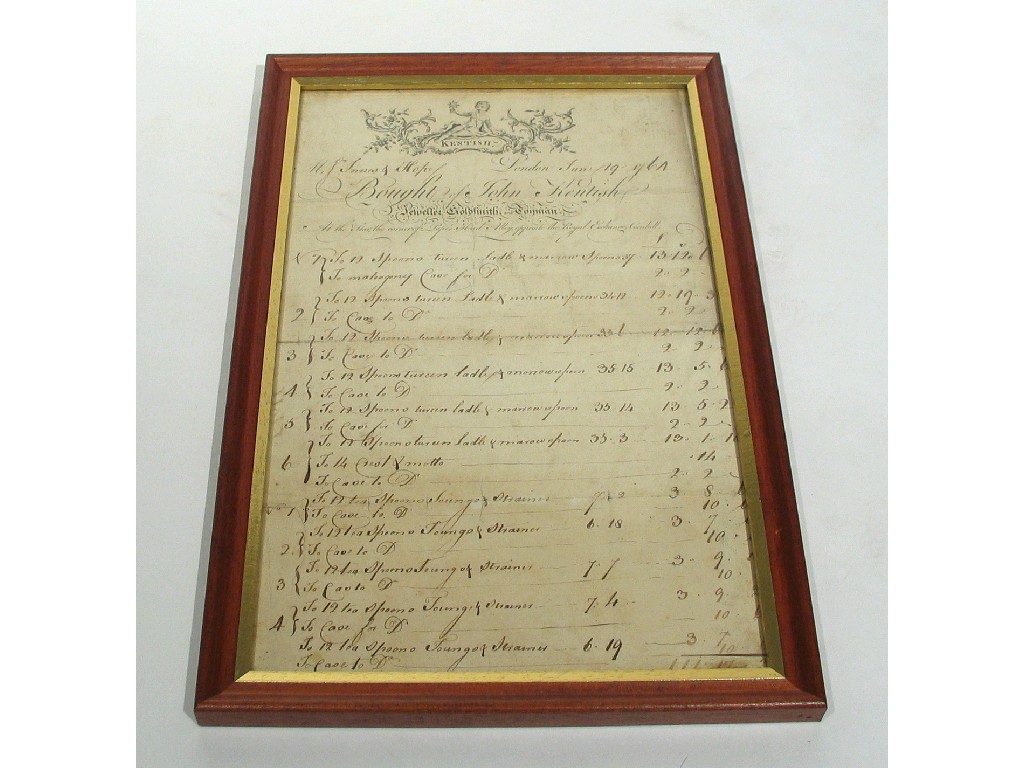 KENTISH
& Hope London June 19 176
Bought of John Kentish
Jeweller Goldsmith & Toyman
At the Star, the corner of Popes Head Alley, opposite the Royal Exchange, Cornhill
1 } To 12 Spoons tureen Ladle & marrow Spoons 37 13 12
To mahogony Case for Do 2 2
To 12 Spoons tureen Ladle & marrow spoons 12 19 3
2 } To Case to Do 2 2
To 12 Spoons tureen ladle & marrow spoon 33 6 12 12 6
3 } To Case to Do 2 2
To 12 Spoons tureen ladle & marrow spoon 35 15 13 5
4 } To Case to Do 2 2
To 12 Spoons tureen ladle & marrow spoon 35 14 13 5 2
5 } To Case for Do 2 2
To 12 Spoons tureen ladle & marow spoon 35 3 13 1
6 } To 14 Crest & motto 14
To Case to Do 2 2
1 } To 12 tea Spoons Toungs & Strainer 7 2 3 8
To Case to Do 10
To 12 tea Spoons Toungs & Strainer 6 18 3 7
2 } To Case to Do 10
To 12 tea Spoons Toungs & Strainer 7 7 3 9
3 } To Case to Do 10
To 12 tea Spoons Toungs & Strainer 7 4 3 9
4 } To Case for Do 10
To 12 tea Spoons Toungs & Strainer 6 19 3 7
To Case to Do 10